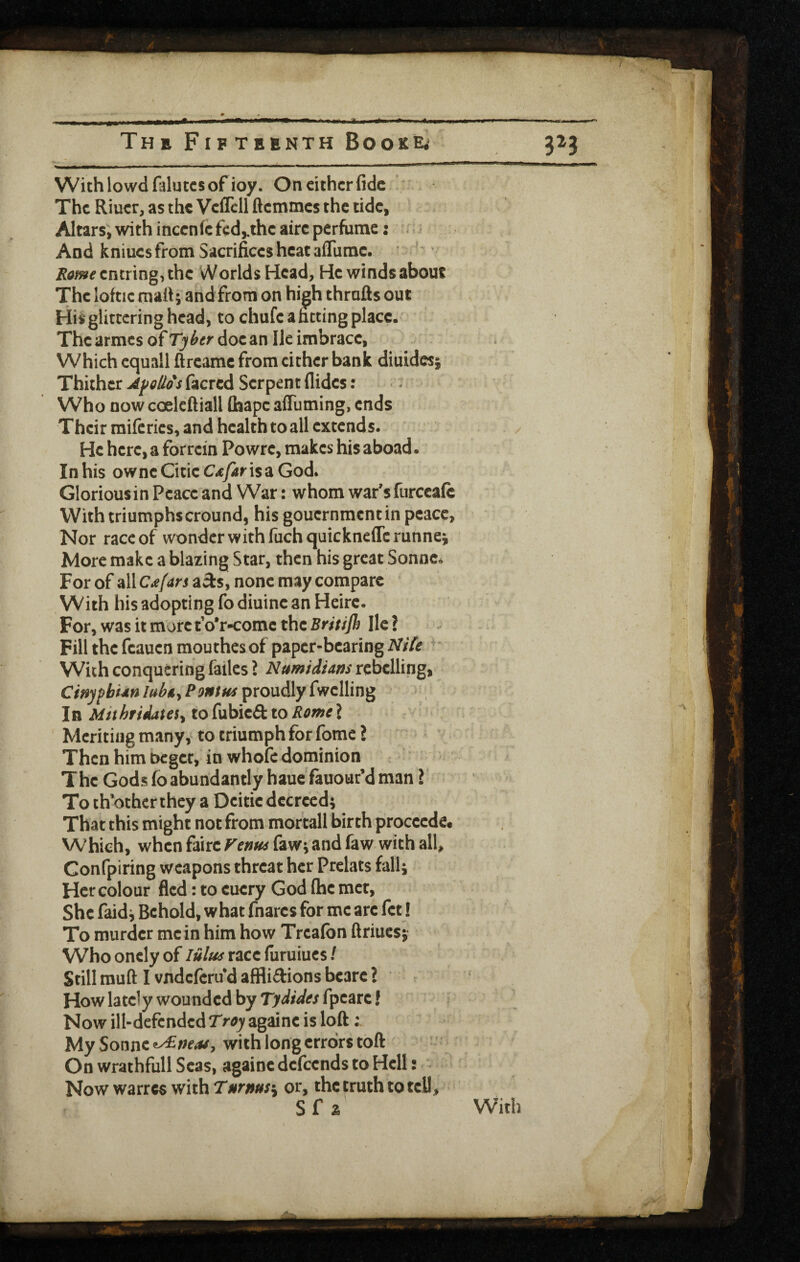 THE FIFTEENTH BOOKE. 323
With lowd ſalutes of ioy. On either ſide
The Riuer, as the Veſſell ſtemmes the tide,
Altars, with incenſe fed, the aire perfume:
And kniues from Sacrifices heat aſſume.
Rome entring, the Worlds Head, He winds about
The loftie maſt; and from on high thruſts out
His glittering head, to chuſe a fitting place.
The armes of Tyber doe an Ile imbrace,
Which equall ſtreame from either bank diuides;
Thither Apollo's ſacred Serpent ſlides:
Who now cœleſtiall ſhape aſſuming, ends
Their miſeries, and health to all extends.
He here, a forrein Powre, makes his aboad.
In his owne Citie Cæſar is a God.
Glorious in Peace and War: whom war's ſurceaſe
With triumphs cround, his gouernment in peace,
Nor race of wonder with ſuch quickneſſe runne;
More make a blazing Star, then his great Sonne.
For of all Cæſars acts, none may compare
With his adopting ſo diuine an Heire.
For, was it more t'o'r-come the Britiſh Ile?
Fill the ſeauen mouthes of paper-bearing Nile
With conquering ſailes? Numidians rebelling,
Cinyphian Iuba, Pontus proudly ſwelling
In Mithridates, to ſubiect to Rome?
Meriting many, to triumph for ſome?
Then him beget, in whoſe dominion
The Gods ſo abundantly haue fauour'd man?
To th'other they a Deitie decreed;
That this might not from mortall birth proceede.
Which, when faire Venus ſaw; and ſaw with all,
Conſpiring weapons threat her Prelats fall;
Her colour fled: to euery God ſhe met,
She ſaid; Behold, what ſnares for me are ſet!
To murder me in him how Treaſon ſtriues;
Who onely of Iülus race ſuruiues!
Still muſt I vndeſeru'd afflictions beare?
How lately wounded by Tydides ſpeare!
Now ill-defended Troy againe is loſt:
My Sonne Æneas, with long errors toſt
On wrathfull Seas, againe deſcends to Hell:
Now warres with Turnus; or, the truth to tell,
Sſ 2 With